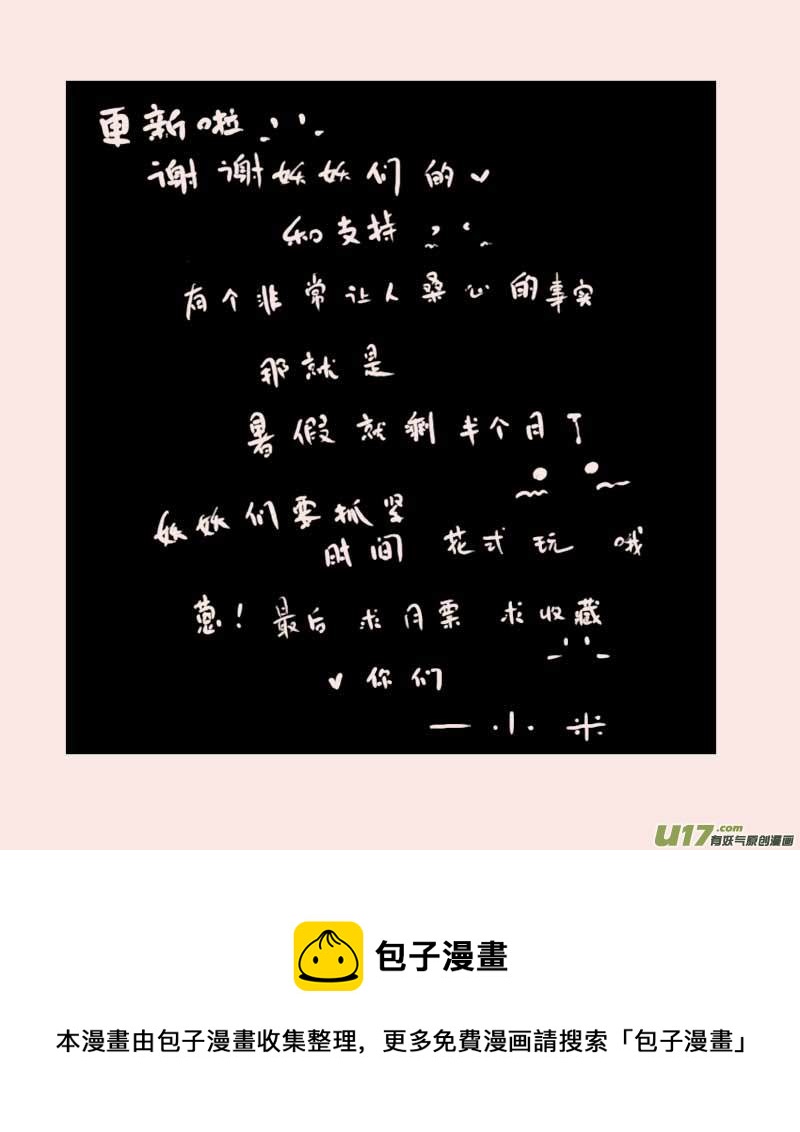 更新啦
谢谢妖妖们的♥
和支持
有个非常让人桑心的事实
那就是
暑假就剩半个月了
妖妖们要抓紧
时间 花式玩 哦
葱！最后 求月票 求收藏
♥你们
一小米
U17.com
有妖气原创漫画
包子漫畫
本漫畫由包子漫畫收集整理，更多免費漫画請搜索「包子漫畫」